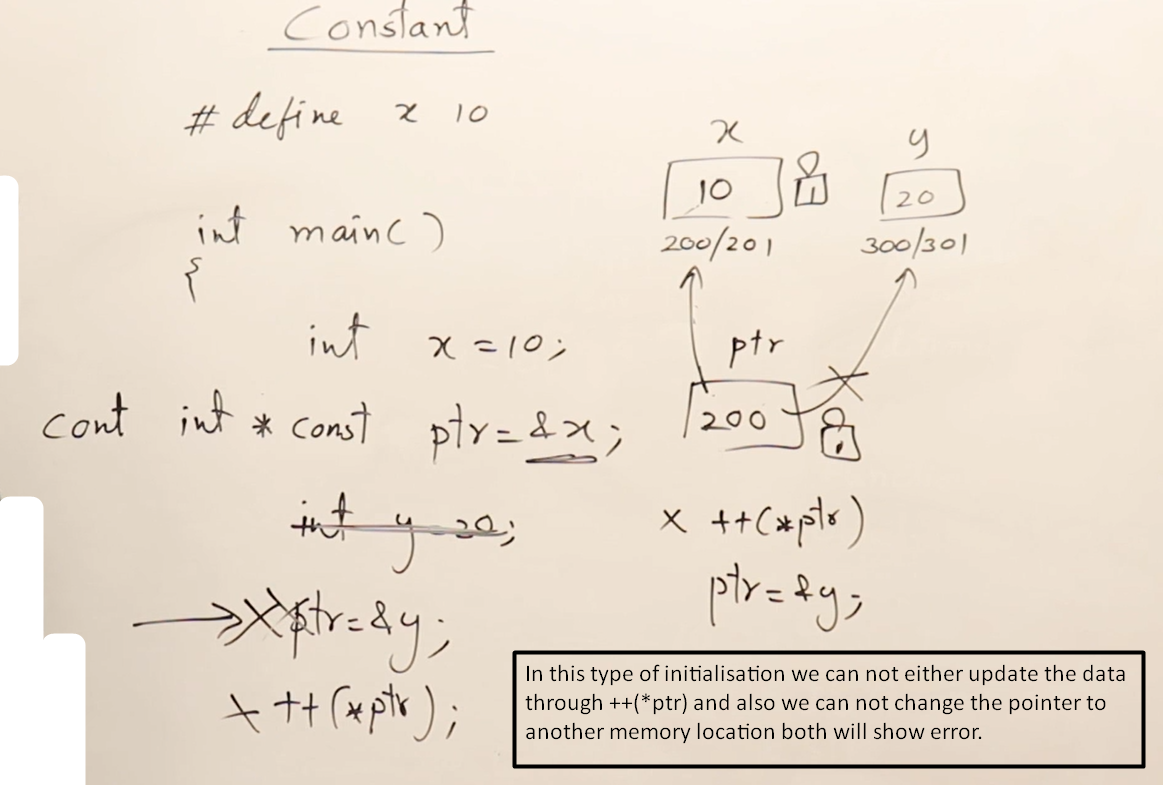 Constant
# define x 10
int main()
{
int x = 10;
cont int * const ptr = &x;
int y 20;
→ X ptr = &y;
x ++(*ptr);
x
10
200/201
y
20
300/301
ptr
200
x ++(*ptr)
ptr = &y;
In this type of initialisation we can not either update the data
through ++(*ptr) and also we can not change the pointer to
another memory location both will show error.